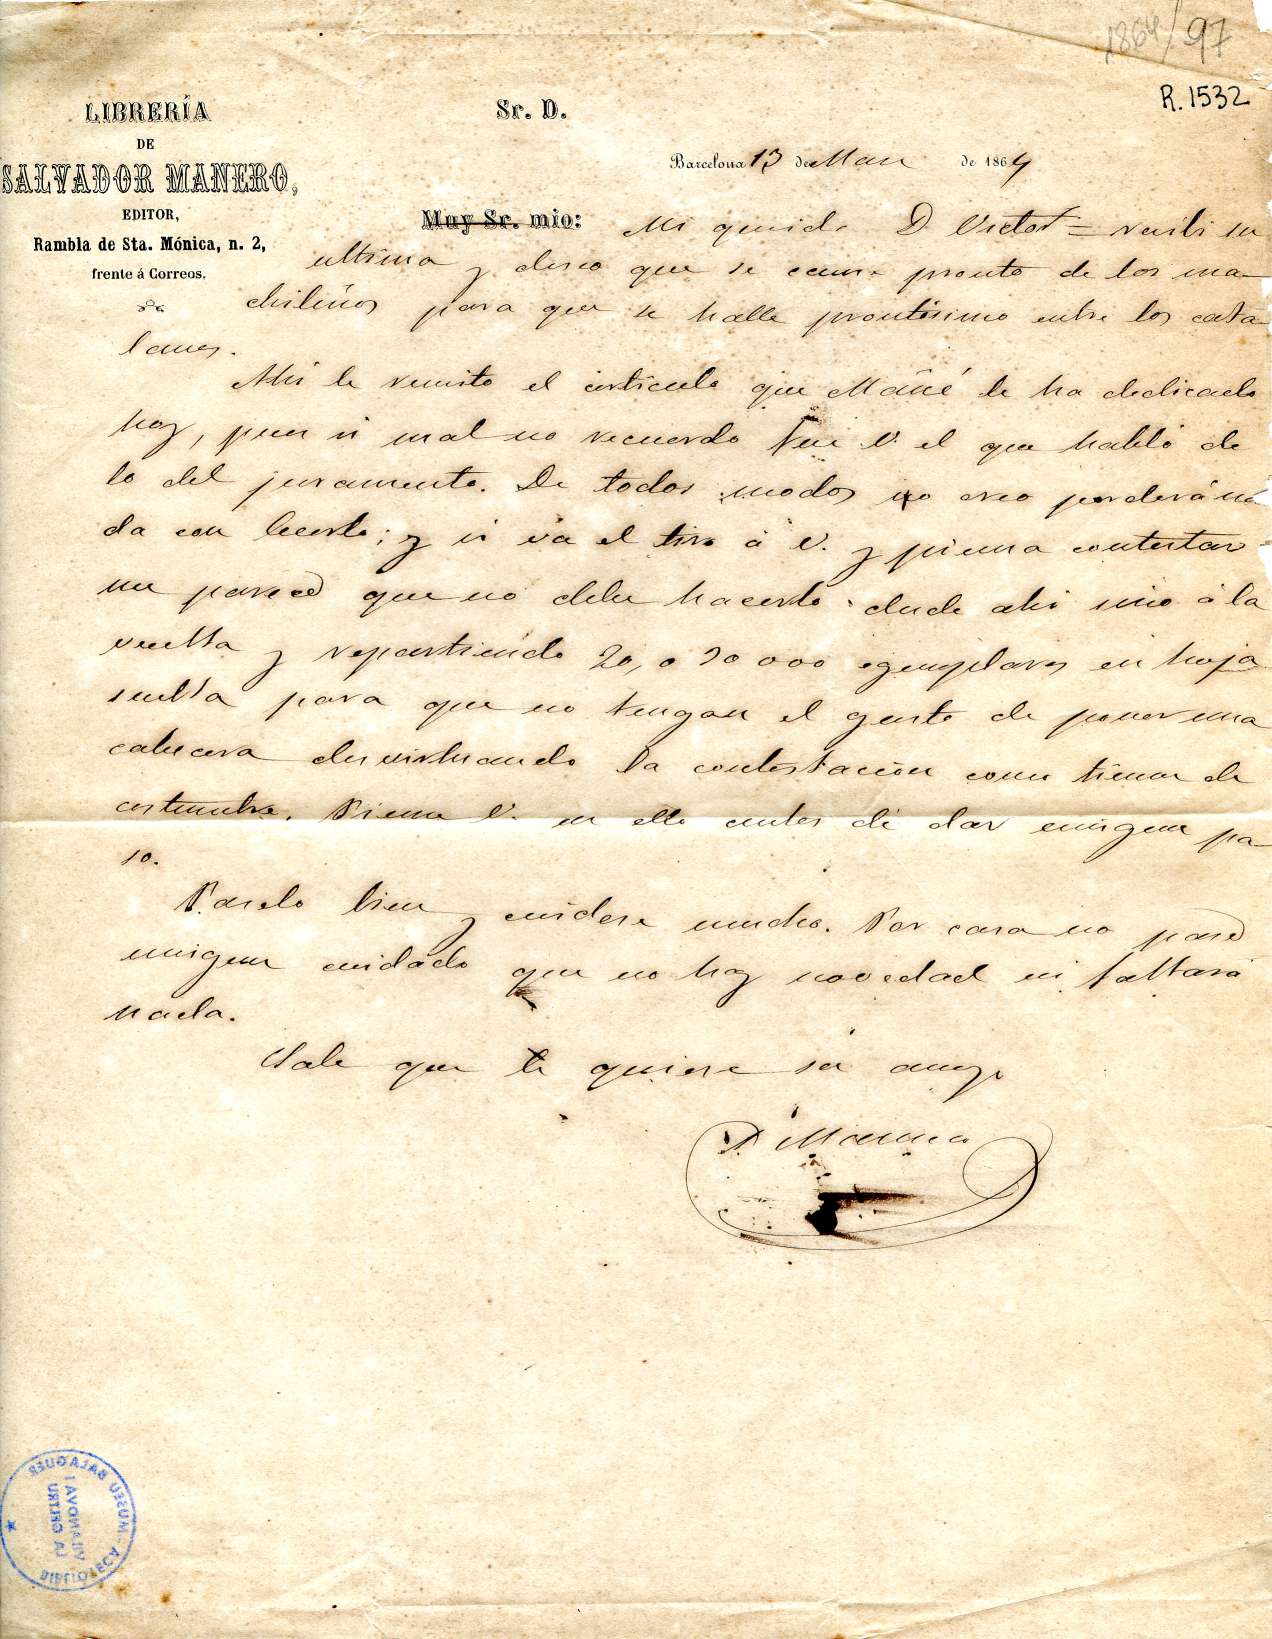 1864/97
R. 1532
LIBRERÍA
DE
SALVADOR MANERO,
EDITOR,
Rambla de Sta. Mónica, n. 2,
frente á Correos.
Sr. D.
Barcelona 13 de de 1864
Muy Sr. mio: Mi querido D Victor = recibi su
ultima y deseo que se canse pronto de los ma-
drileños para que se halle prontisimo entre los cata-
lanes.
Ahi le remito el articulo que Mañé le ha dedicado
hoy, pues si mal no recuerdo fue V. el que habló de
lo del juramento. De todos modos no creo perderá na
da con leerlo; y si va el tiro á V. y piensa contestar
me parece que no debe hacerlo desde ahi sino á la
vuelta y repartiendo 20, o 30 000 egemplares en hoja
suelta para que no tengan el gusto de poner una
cabecera desvirtuando la contestacion como tienen de
costumbre. Piense V. en ello antes de dar ningun pa-
so.
Paselo bien y cuidese mucho. Por casa no pase
ningun cuidado que no hay novedad ni faltará
nada.
Vale que le quiere su amigo
S Manero
BIBLIOTECA MUSEU BALAGUER
VILANOVA I
LA GELTRU